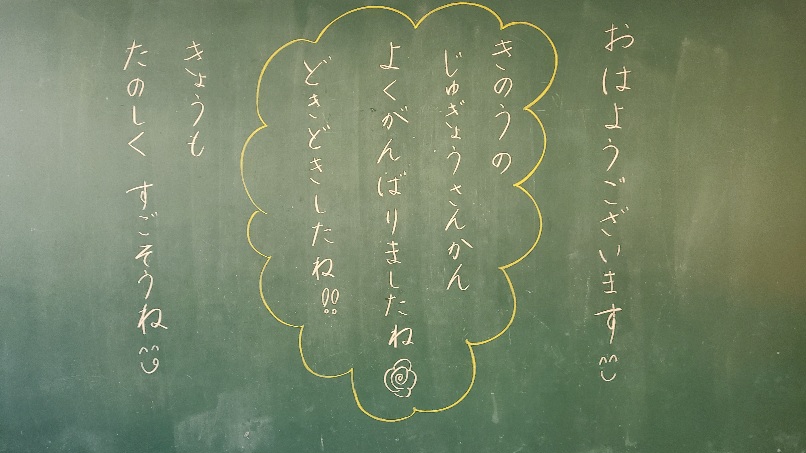 おはようございます
きのうの
じゅぎょうさんかん
よくがんばりましたね
どきどきしたね!!
きょうも
たのしく すごそうね